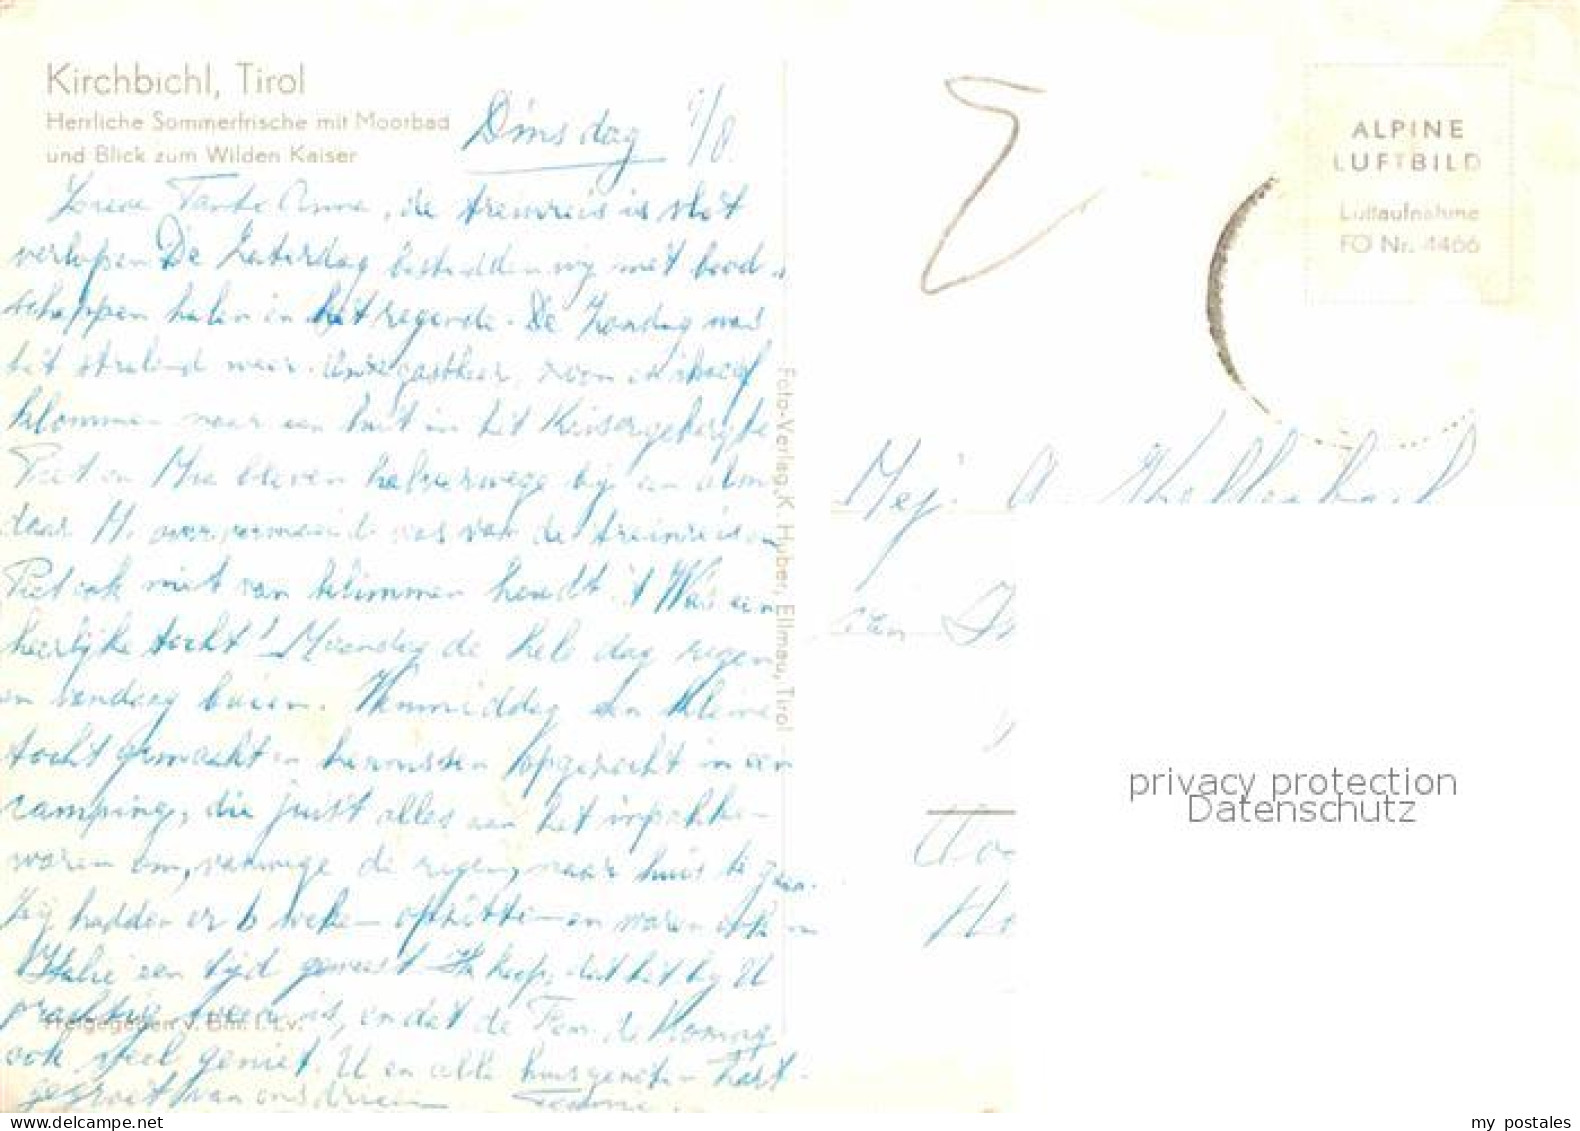 Kirchbichl, Tirol
Herrliche Sommerfrische mit Moorbad
und Blick zum Wilden Kaiser
Dinsdag 9/8.
Tante Anna, de treinreis is vlot
verlopen De Zaterdag besteedden wij met bood-
schappen halen en het regende. De Zondag was
het stralend weer.
klommen naar een hut in het Keisergebergte
Piet en Mia bleven halverwege bij een alm
daar M. oververmoeid was van de treinreis en
Piet ook niet van klimmen houdt. 't Was een
heerlijke tocht! Maandag de hele dag regen
en vandaag buien. Vanmiddag een kleine
tocht gemaakt en intussen opgezocht in een
camping, die juist alles aan het inpakken
waren om, vanwege de regen, naar huis te gaan.
Zij hadden er 6 weken opzitten en waren ook in
Italië een tijd geweest Ik hoop, dat het bij U
prachtig weer is, en dat de Fam. de Koning
ook veel geniet. U en alle huisgenoten hart-
gegroet van ons drieën
Freigegeben v. B.m.f. Lv.
Foto-Verlag K. Huber, Ellmau, Tirol
ALPINE
LUFTBILD
Luftaufnahme
FO Nr. 4466
Mej. A.
van
privacy protection
Datenschutz
my postales